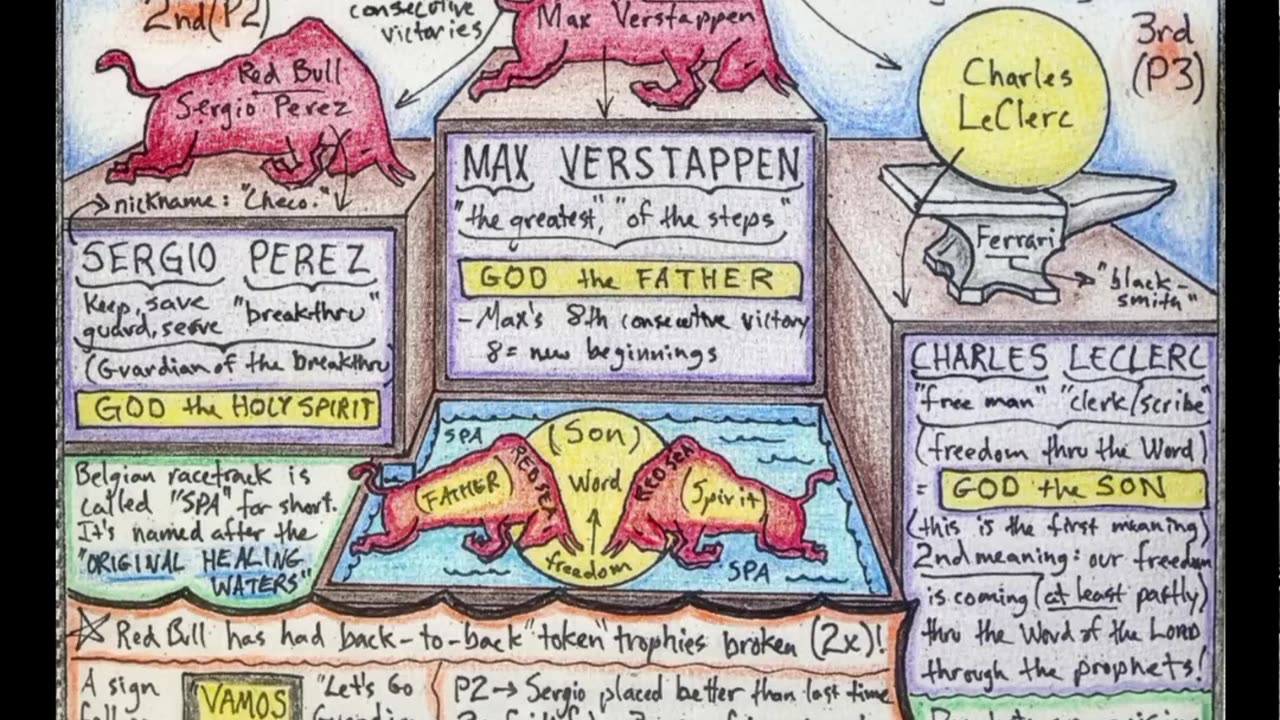 2nd (P2)
consecutive
victories
Max Verstappen
3rd
(P3)
Red Bull
Sergio Perez
Charles
LeClerc
nickname: "Checo."
Ferrari
"black-
smith"
MAX VERSTAPPEN
"the greatest," "of the steps"
GOD the FATHER
- Max's 8th consecutive victory
8 = new beginnings
SERGIO PEREZ
Keep, save
guard, serve
"breakthru"
(Guardian of the breakthru)
GOD the HOLY SPIRIT
CHARLES LECLERC
"free man" "clerk/scribe"
(freedom thru the Word)
= GOD the SON
(this is the first meaning)
2nd meaning: our freedom
is coming (at least partly)
thru the Word of the LORD
through the prophets!
SPA
(Son)
Word
freedom
FATHER
RED SEA
RED SEA
Spirit
SPA
Belgian racetrack is
called "SPA" for short.
It's named after the
"ORIGINAL HEALING
WATERS"
Red Bull has had back-to-back "token" trophies broken (2x)!
A sign
VAMOS
"Let's Go
P2 → Sergio placed better than last time